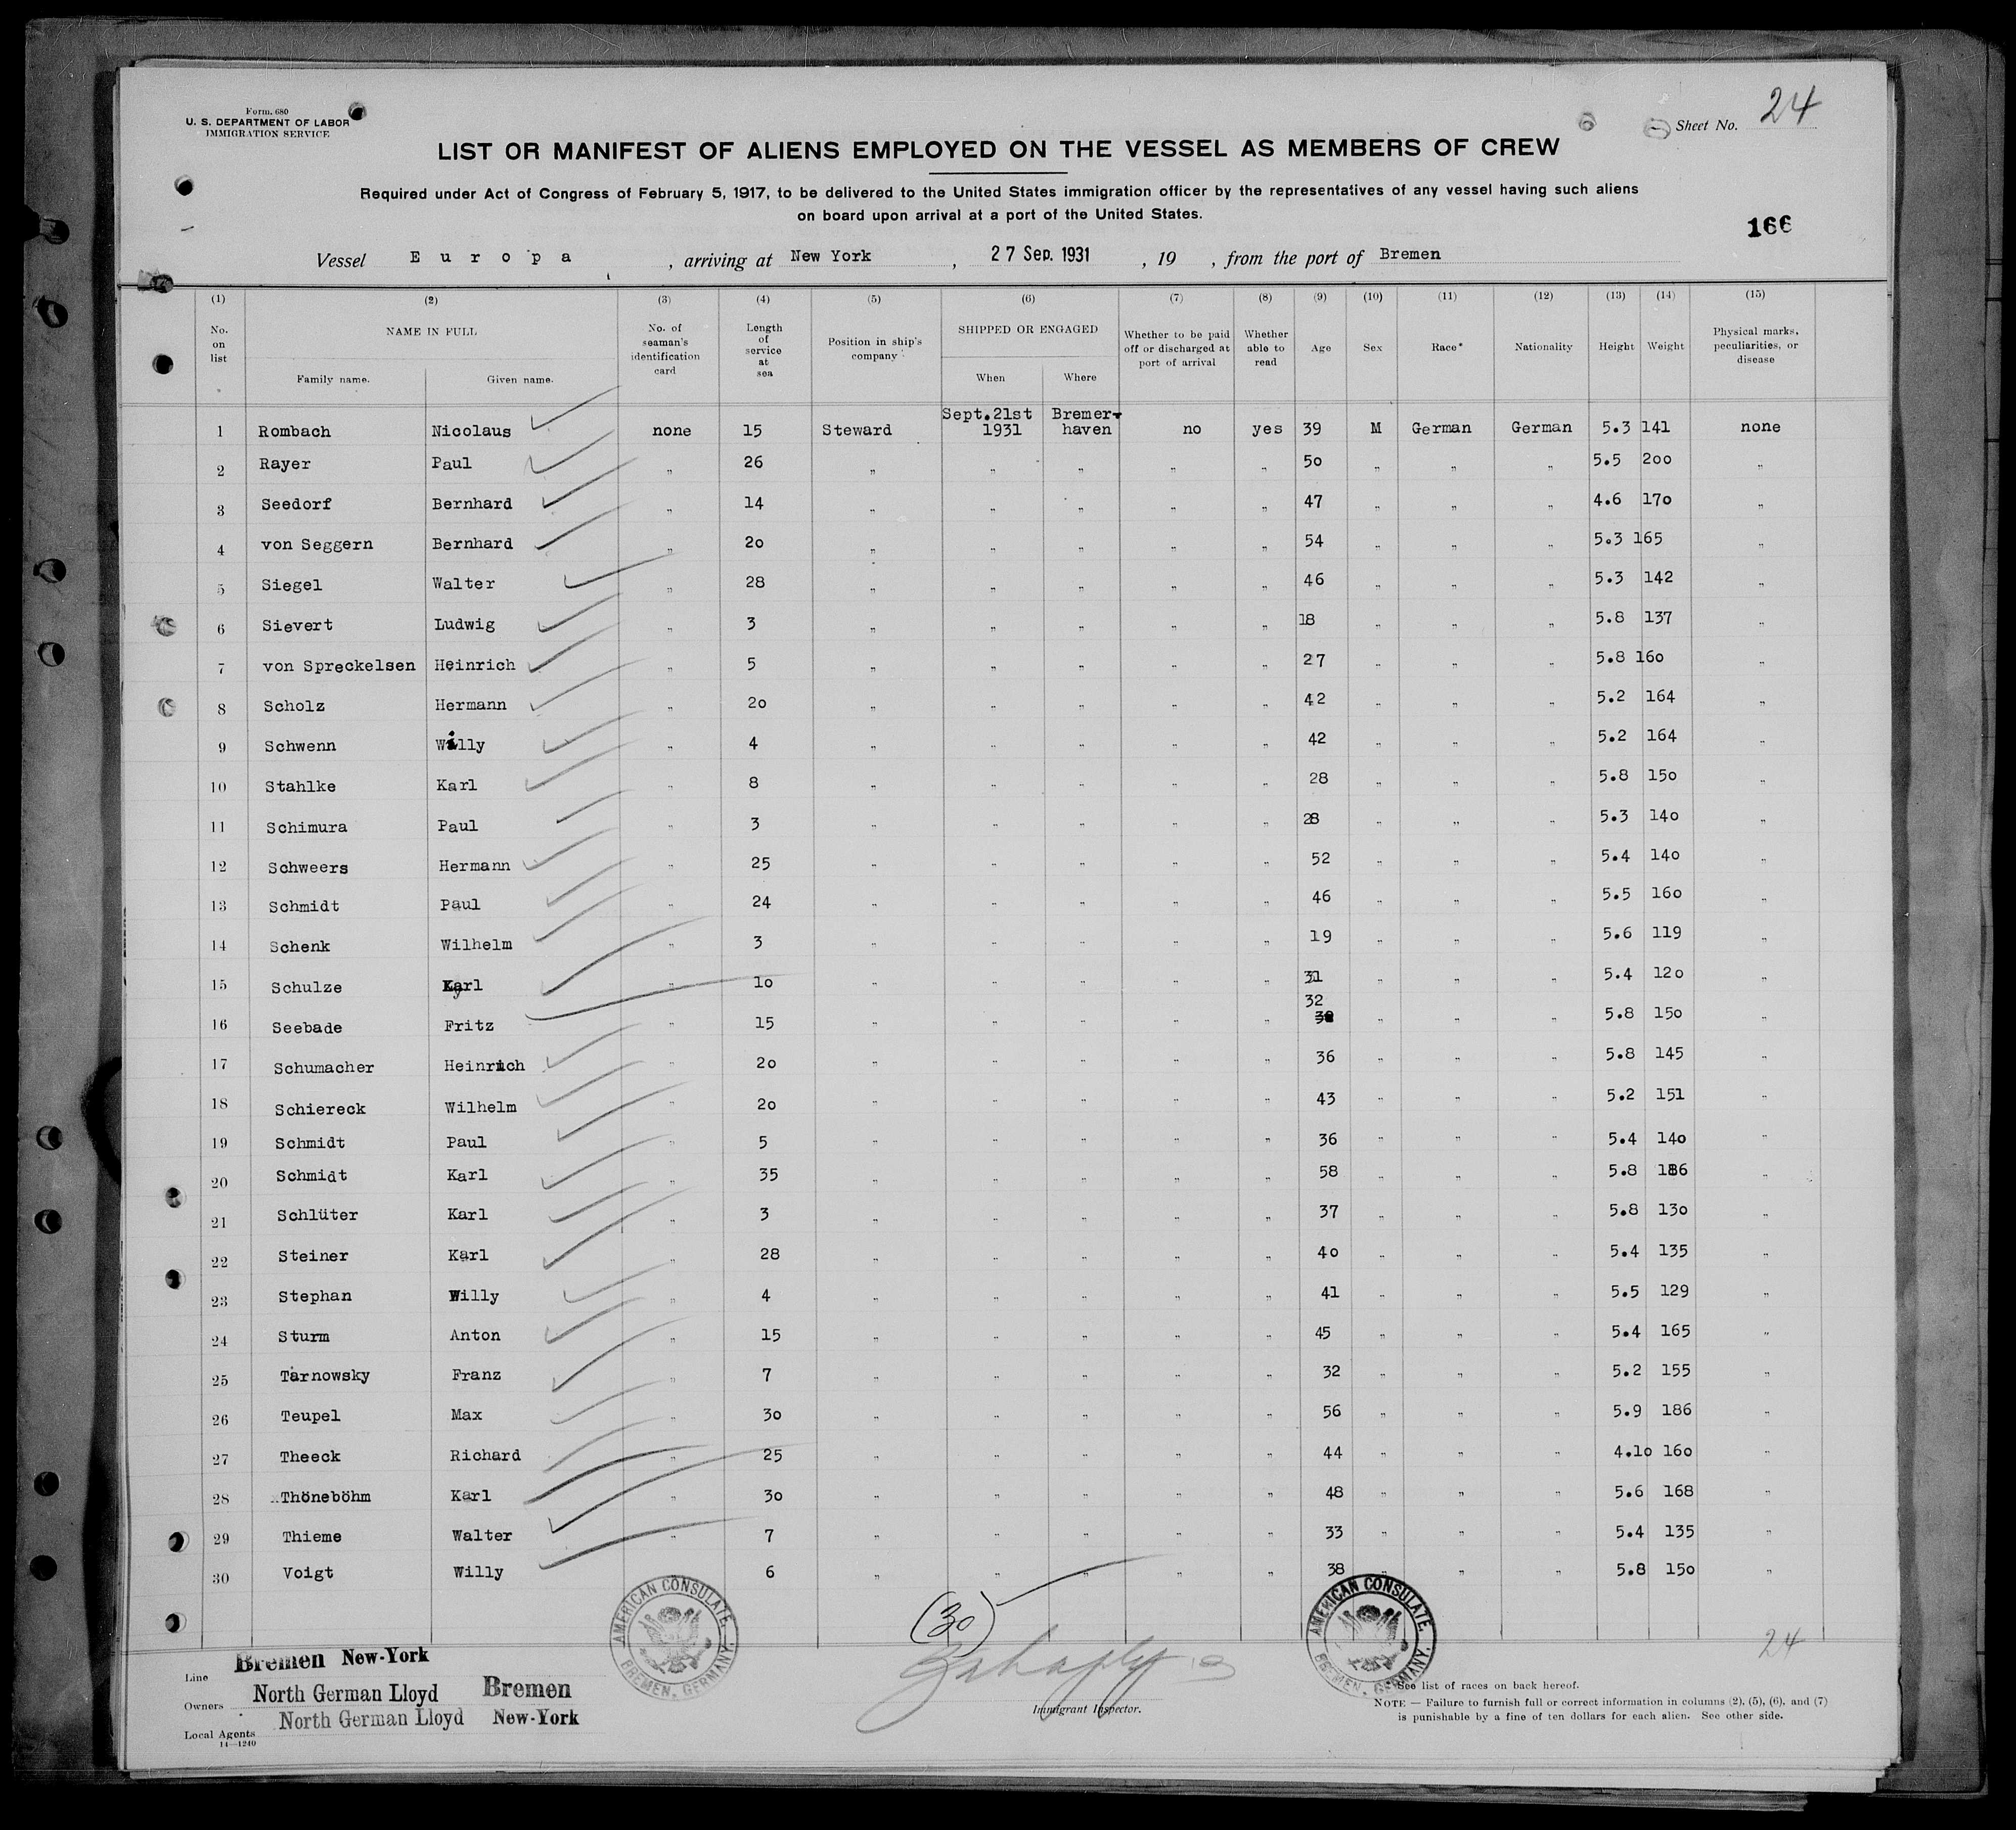 Form. 680
U. S. DEPARTMENT OF LABOR
IMMIGRATION SERVICE
Sheet No. 24
LIST OR MANIFEST OF ALIENS EMPLOYED ON THE VESSEL AS MEMBERS OF CREW
Required under Act of Congress of February 5, 1917, to be delivered to the United States immigration officer by the representatives of any vessel having such aliens
on board upon arrival at a port of the United States.
166
Vessel Europa , arriving at New York , 27 Sep. 1931 , 19 , from the port of Bremen
(1) (2) (3) (4) (5) (6) (7) (8) (9) (10) (11) (12) (13) (14) (15)
No. on list NAME IN FULL Family name. Given name. No. of seaman's identification card Length of service at sea Position in ship's company SHIPPED OR ENGAGED When Where Whether to be paid off or discharged at port of arrival Whether able to read Age Sex Race* Nationality Height Weight Physical marks, peculiarities, or disease
1 Rombach Nicolaus none 15 Steward Sept.21st 1931 Bremer-haven no yes 39 M German German 5.3 141 none
2 Rayer Paul " 26 " " " " " 50 " " " 5.5 200 "
3 Seedorf Bernhard " 14 " " " " " 47 " " " 4.6 170 "
4 von Seggern Bernhard " 20 " " " " " 54 " " " 5.3 165 "
5 Siegel Walter " 28 " " " " " 46 " " " 5.3 142 "
6 Sievert Ludwig " 3 " " " " " 18 " " " 5.8 137 "
7 von Spreckelsen Heinrich " 5 " " " " " 27 " " " 5.8 160 "
8 Scholz Hermann " 20 " " " " " 42 " " " 5.2 164 "
9 Schwenn Willy " 4 " " " " " 42 " " " 5.2 164 "
10 Stahlke Karl " 8 " " " " " 28 " " " 5.8 150 "
11 Schimura Paul " 3 " " " " " 28 " " " 5.3 140 "
12 Schweers Hermann " 25 " " " " " 52 " " " 5.4 140 "
13 Schmidt Paul " 24 " " " " " 46 " " " 5.5 160 "
14 Schenk Wilhelm " 3 " " " " " 19 " " " 5.6 119 "
15 Schulze Karl " 10 " " " " " 31 " " " 5.4 120 "
16 Seebade Fritz " 15 " " " " " 32 " " " 5.8 150 "
17 Schumacher Heinrich " 20 " " " " " 36 " " " 5.8 145 "
18 Schiereck Wilhelm " 20 " " " " " 43 " " " 5.2 151 "
19 Schmidt Paul " 5 " " " " " 36 " " " 5.4 140 "
20 Schmidt Karl " 35 " " " " " 58 " " " 5.8 186 "
21 Schlüter Karl " 3 " " " " " 37 " " " 5.8 130 "
22 Steiner Karl " 28 " " " " " 40 " " " 5.4 135 "
23 Stephan Willy " 4 " " " " " 41 " " " 5.5 129 "
24 Sturm Anton " 15 " " " " " 45 " " " 5.4 165 "
25 Tarnowsky Franz " 7 " " " " " 32 " " " 5.2 155 "
26 Teupel Max " 30 " " " " " 56 " " " 5.9 186 "
27 Theeck Richard " 25 " " " " " 44 " " " 4.10 160 "
28 Thöneböhm Karl " 30 " " " " " 48 " " " 5.6 168 "
29 Thieme Walter " 7 " " " " " 33 " " " 5.4 135 "
30 Voigt Willy " 6 " " " " " 38 " " " 5.8 150 "
(30)
AMERICAN CONSULATE
BREMEN, GERMANY.
AMERICAN CONSULATE
BREMEN, GERMANY.
24
Line Bremen New-York
Owners North German Lloyd Bremen
Local Agents North German Lloyd New-York
14—1240
Immigrant Inspector.
See list of races on back hereof.
NOTE — Failure to furnish full or correct information in columns (2), (5), (6), and (7)
is punishable by a fine of ten dollars for each alien. See other side.